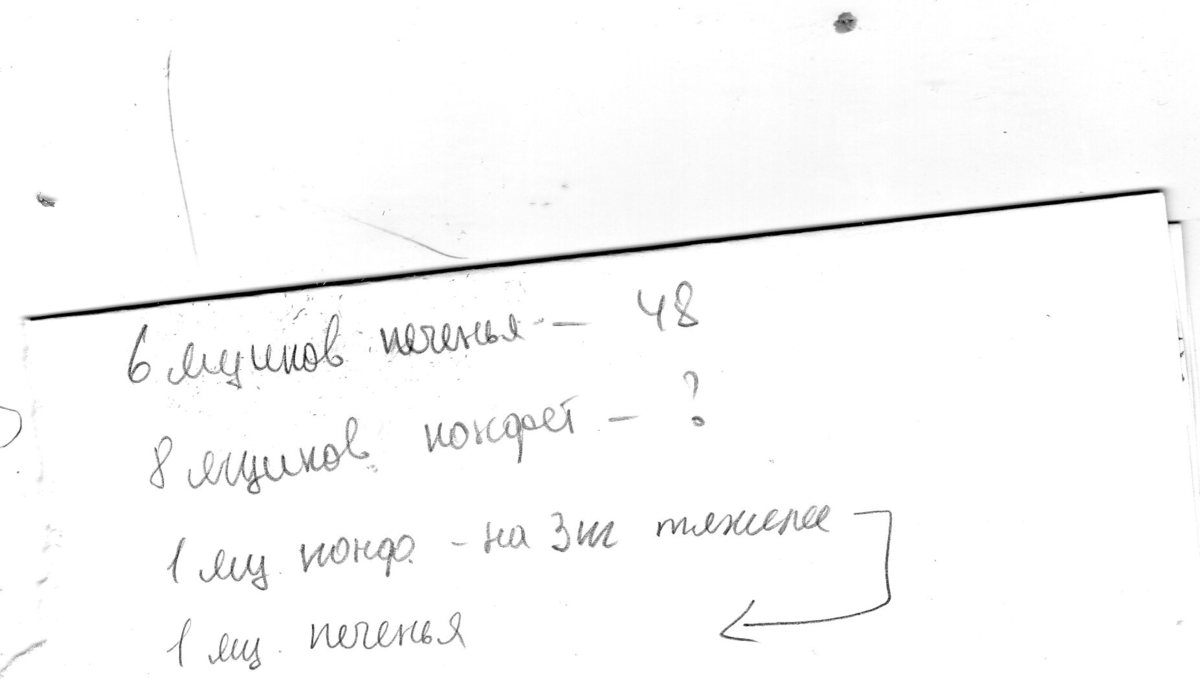 6 ящиков печенья - 48
8 ящиков конфет - ?
1 ящ. конф. - на 3 кг тяжелее
1 ящ. печенья